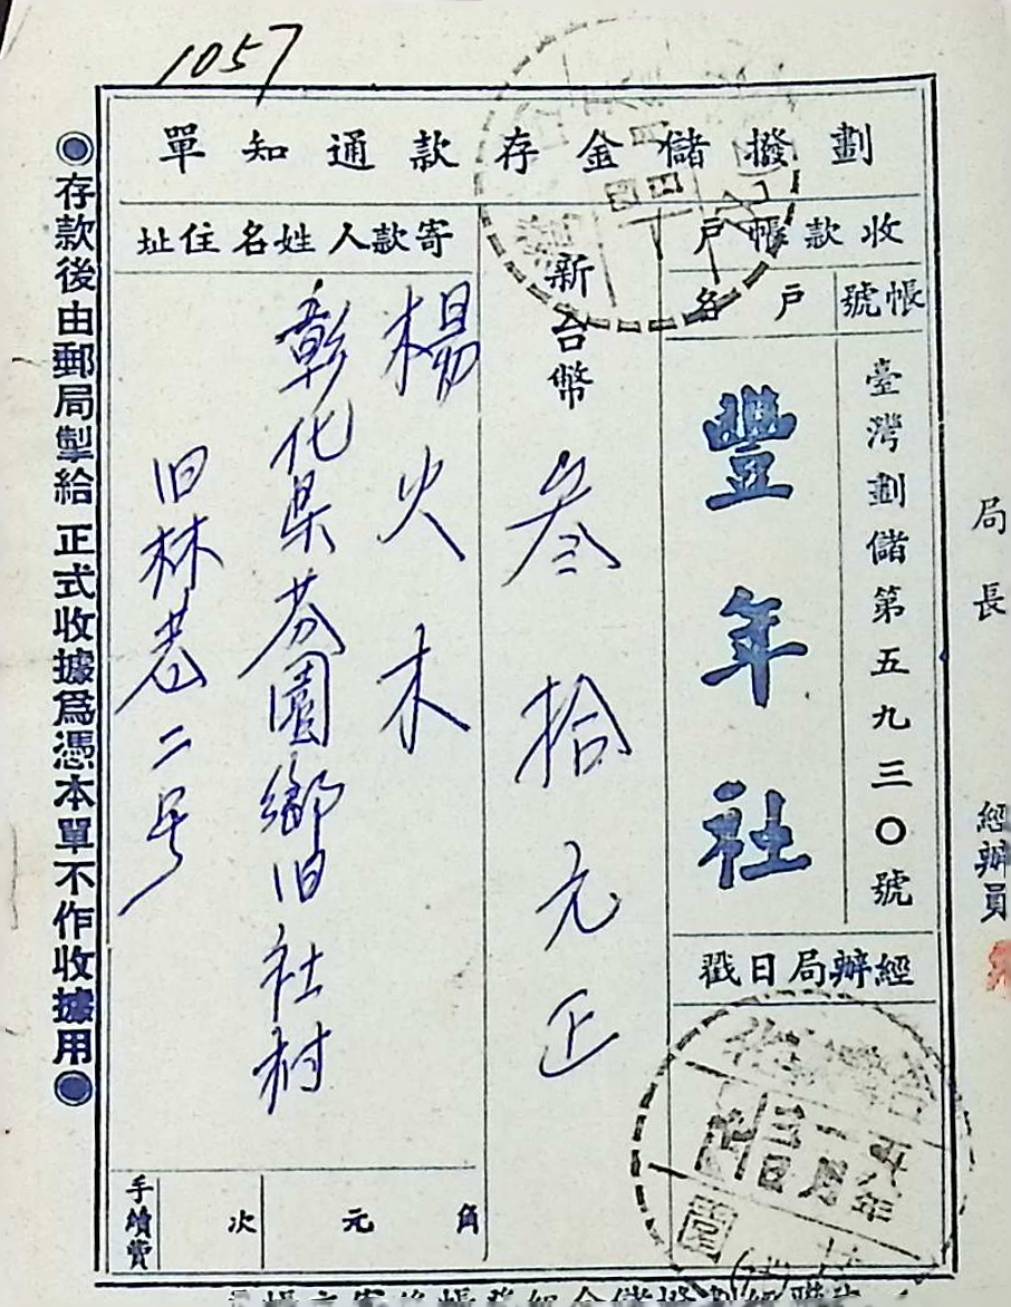 1057
劃撥儲金存款通知單
收款帳戶
帳號
臺灣劃儲第五九三〇號
戶名
豐年社
經辦局日戳
新台幣
叁拾元正
寄款人姓名住址
楊火木
彰化県芬園鄉旧社村
旧林巷二号
手續費
次
元
角
●存款後由郵局掣給正式收據爲憑本單不作收據用●
局長
經辦員